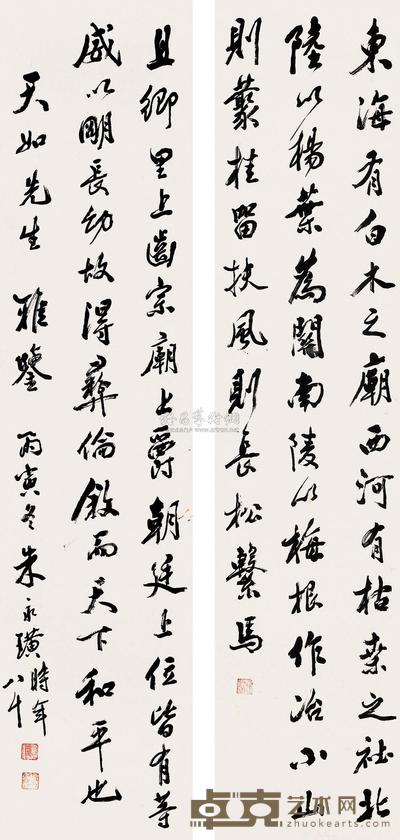 東海有白木之廟西河有枯桒之社北
陸以楊葉為關南陵以梅根作冶小山
則叢桂留扶風則長松繫馬
且鄉里上齒宗廟上爵朝廷上位皆有等
威以明長幼故得彝倫敘而天下和平也
天如先生 雅鑒 丙寅冬朱永璜時年
八十
卓克艺术网
www.zhuokearts.com